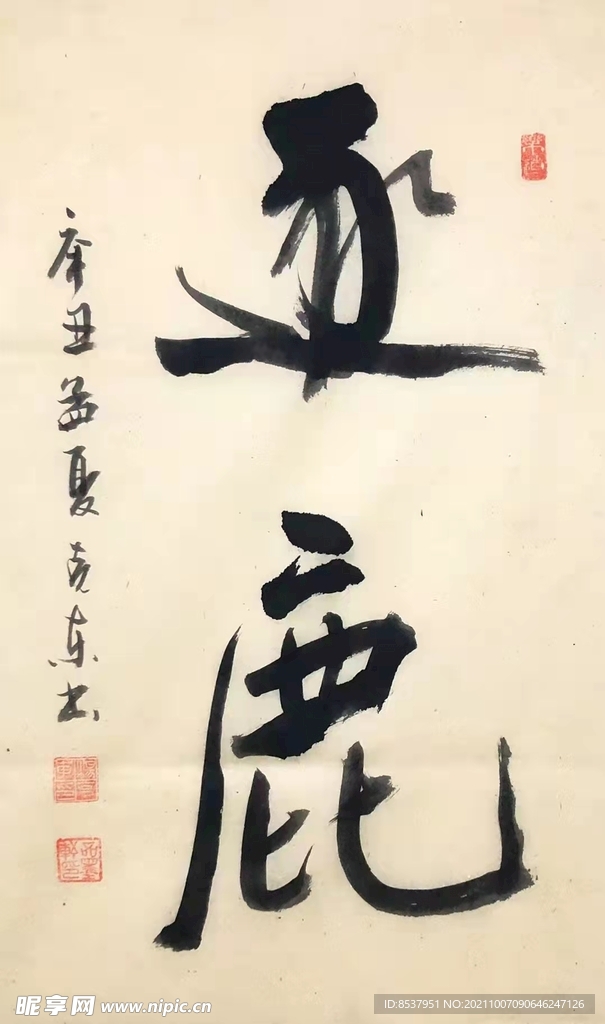 逐鹿
辛丑孟夏克东书
昵享网 www.nipic.cn
ID:8537951 NO:20211007090646247126